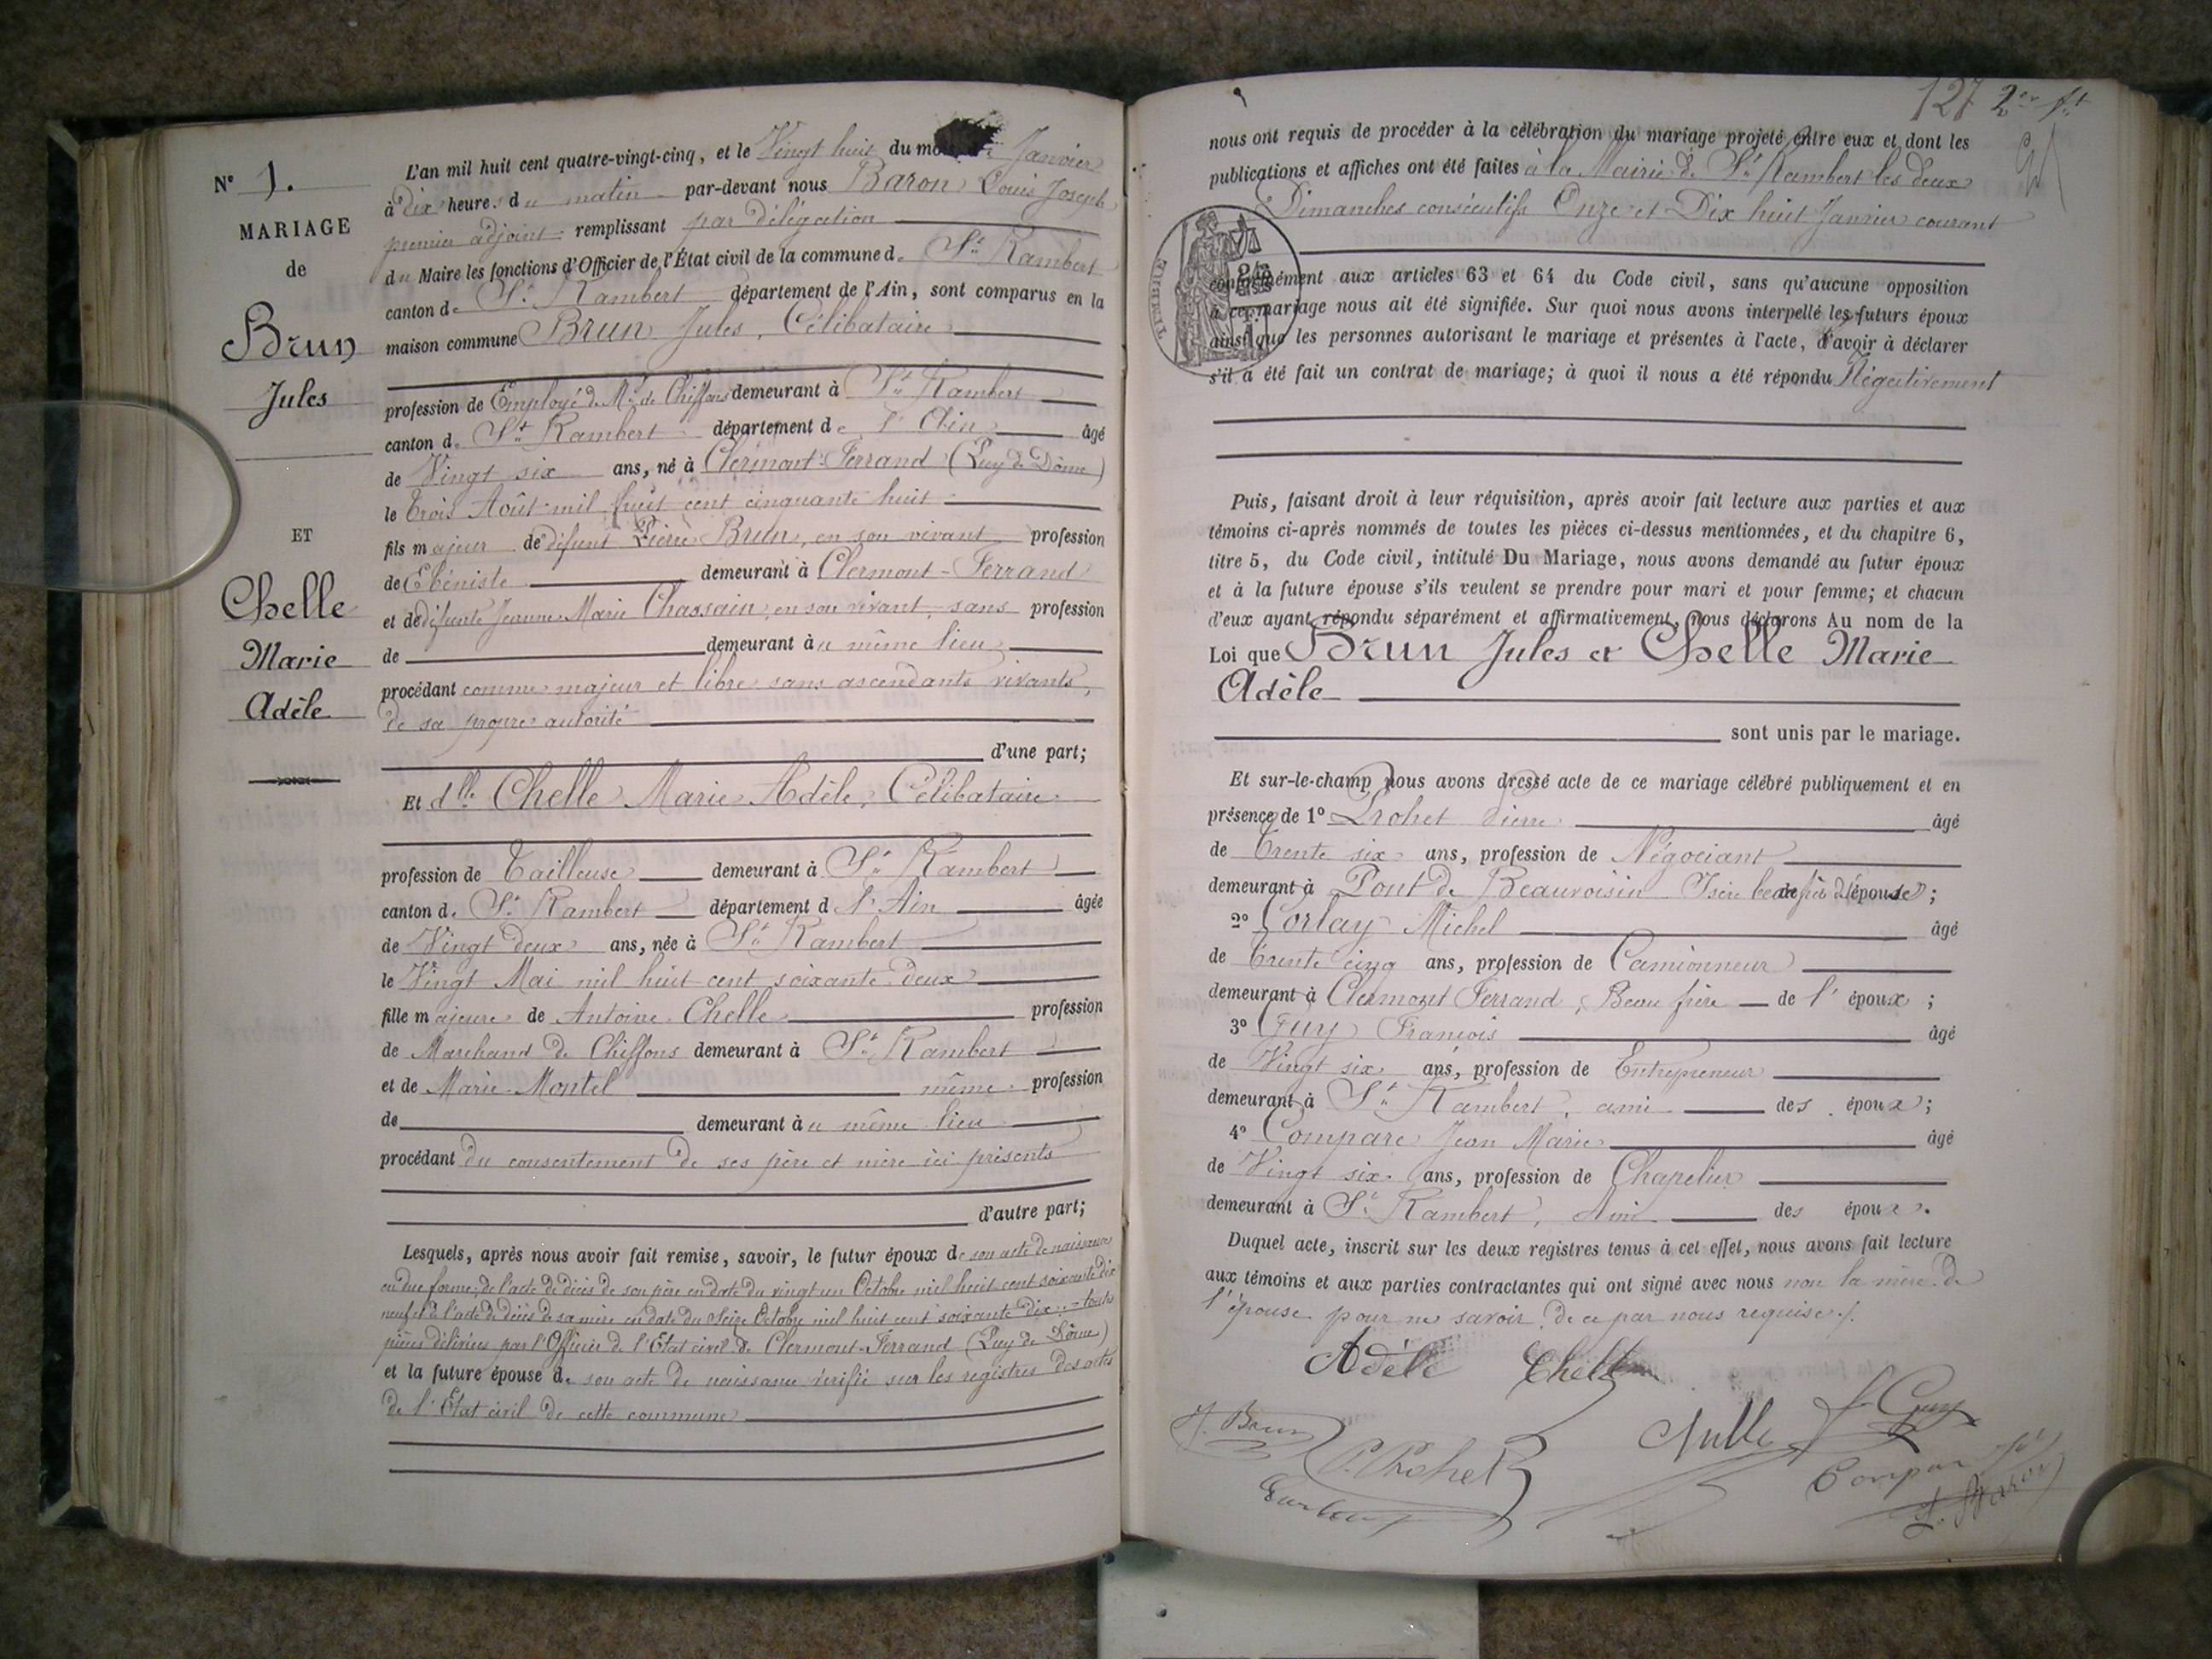 N° 1.
MARIAGE
de
Brun
Jules
ET
Chelle
Marie
Adèle
L'an mil huit cent quatre-vingt-cinq, et le Vingt huit du mois de Janvier
à dix heures du matin par-devant nous Baron Louis Joseph
premier adjoint remplissant par délégation
du Maire les fonctions d'Officier de l'État civil de la commune de St Rambert
canton de St Rambert département de l'Ain, sont comparus en la
maison commune Brun Jules, Célibataire
profession de Employé de Md de Chiffons demeurant à St Rambert
canton de St Rambert département de l'Ain âgé
de Vingt six ans, né à Clermont-Ferrand (Puy de Dôme)
le Trois Août mil huit cent cinquante huit
fils majeur de défunt Pierre Brun, en son vivant profession
de Ebéniste demeurant à Clermont-Ferrand
et de défunte Jeanne Marie Chassain, en son vivant, sans profession
de demeurant au même lieu
procédant comme majeur et libre sans ascendants vivants,
de sa propre autorité
d'une part;
Et dlle Chelle Marie Adèle, Célibataire
profession de Tailleuse demeurant à St Rambert
canton de St Rambert département d l'Ain âgée
de Vingt deux ans, née à St Rambert
le Vingt Mai mil huit cent soixante deux
fille majeure de Antoine Chelle profession
de Marchand de Chiffons demeurant à St Rambert
et de Marie Montel même profession
de demeurant au même lieu
procédant du consentement de ses père et mère ici présents
d'autre part;
Lesquels, après nous avoir fait remise, savoir, le futur époux de son acte de naissance
en due forme, de l'acte de décès de son père en date du vingt un Octobre mil huit cent soixante dix
neuf et de l'acte de décès de sa mère en date du Seize Octobre mil huit cent soixante dix - toutes
pièces délivrées par l'Officier de l'Etat civil de Clermont-Ferrand (Puy de Dôme)
et la future épouse de son acte de naissance vérifié sur les registres des actes
de l'Etat civil de cette commune
127 2er
nous ont requis de procéder à la célébration du mariage projeté entre eux et dont les
publications et affiches ont été faites à la Mairie de St Rambert les deux
Dimanches consécutifs Onze et Dix huit Janvier courant
TIMBRE
conformément aux articles 63 et 64 du Code civil, sans qu'aucune opposition
à ce mariage nous ait été signifiée. Sur quoi nous avons interpellé les futurs époux
ainsi que les personnes autorisant le mariage et présentes à l'acte, d'avoir à déclarer
s'il a été fait un contrat de mariage; à quoi il nous a été répondu Négativement
Puis, faisant droit à leur réquisition, après avoir fait lecture aux parties et aux
témoins ci-après nommés de toutes les pièces ci-dessus mentionnées, et du chapitre 6,
titre 5, du Code civil, intitulé Du Mariage, nous avons demandé au futur époux
et à la future épouse s'ils veulent se prendre pour mari et pour femme; et chacun
d'eux ayant répondu séparément et affirmativement, nous déclarons Au nom de la
Loi que Brun Jules et Chelle Marie
Adèle
sont unis par le mariage.
Et sur-le-champ nous avons dressé acte de ce mariage célébré publiquement et en
présence de 1° Prohet Pierre âgé
de Trente six ans, profession de Négociant
demeurant à Pont de Beauvoisin Isère beau frère de l'épouse;
2° Corlay Michel âgé
de Trente cinq ans, profession de Camionneur
demeurant à Clermont Ferrand, Beau frère de l'époux;
3° Guy François âgé
de Vingt six ans, profession de Entrepreneur
demeurant à St Rambert, ami des époux;
4° Compare Jean Marie âgé
de Vingt six ans, profession de Chapelier
demeurant à St Rambert, Ami des époux.
Duquel acte, inscrit sur les deux registres tenus à cet effet, nous avons fait lecture
aux témoins et aux parties contractantes qui ont signé avec nous non la mère de
l'épouse pour ne savoir de ce par nous requise.
Adèle Chelle
J. Brun
P. Prohet
f Guy
L. Baron